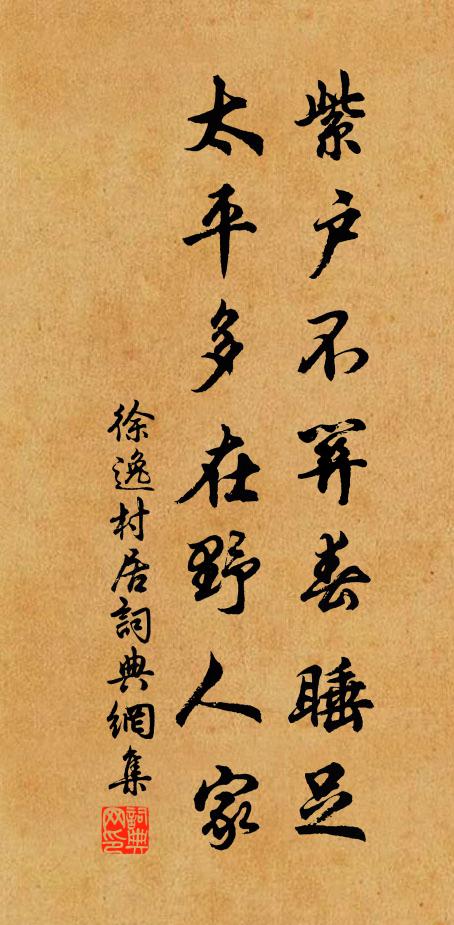 紫户不開春睡足
太平多在野人家
徐逸村居詞典網集
詞典
网印